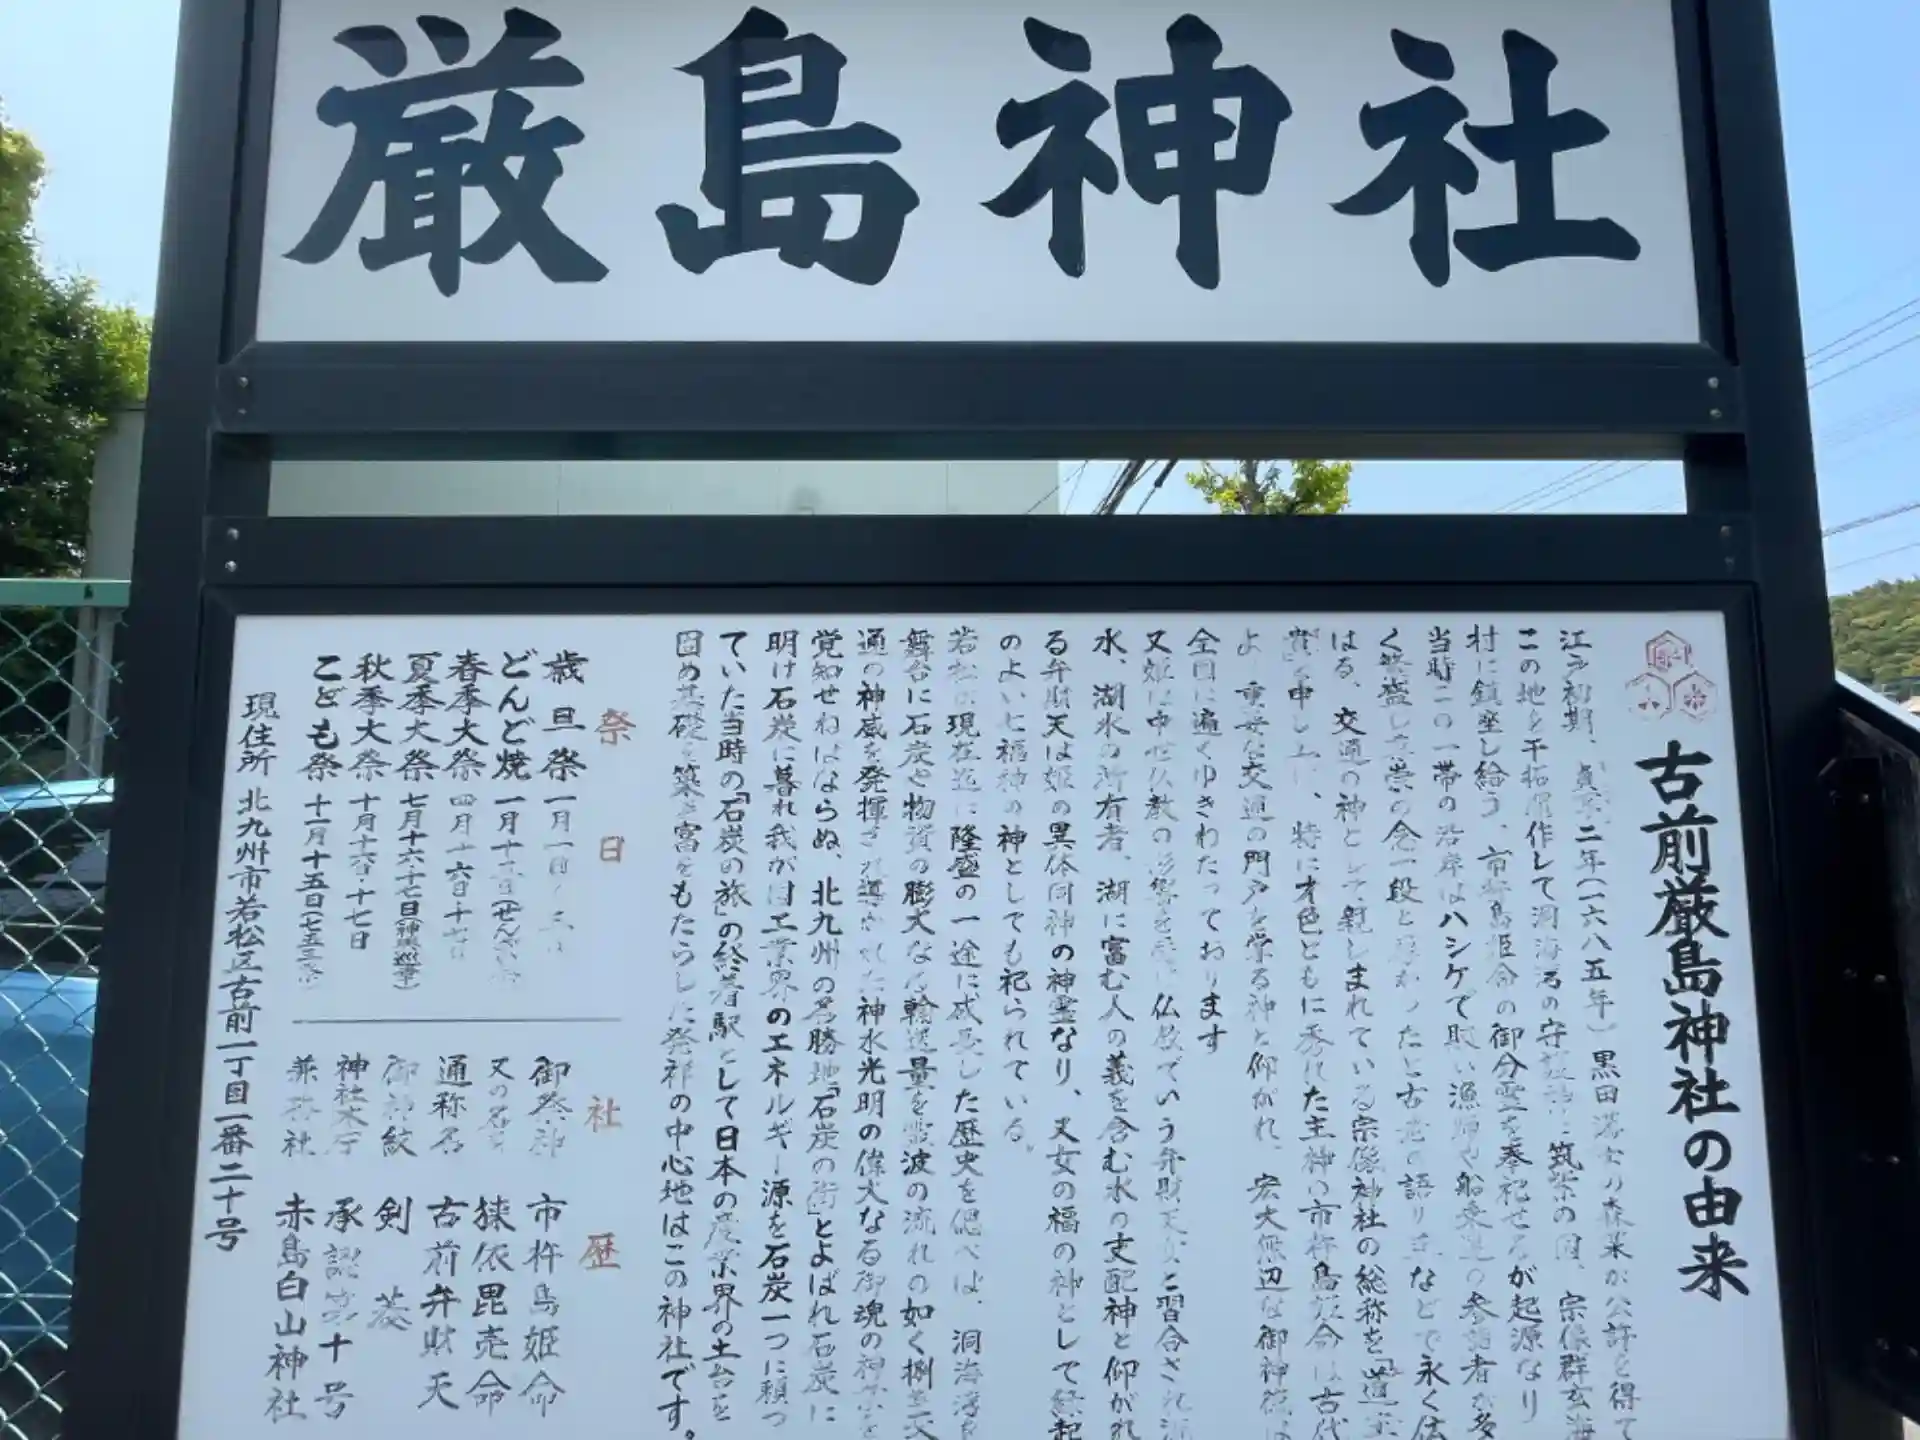 厳島神社
古前厳島神社の由来
江戸初期、貞享二年(一六八五年)黒田藩士の森某が公許を得て
この地を干拓濯作して洞海湾の守護神に筑紫の国、宗像群玄海
村に鎮座し給う、市杵島姫命の御分霊を奉祀せるが起源なり
当時この一帯の沿岸はハシケで賑い漁師や船乗達の参詣者が多
く繁盛し崇の念一段と
はる、交通の神として親しまれている宗像神社の総称を「道主
貴と申し上げ、特に才色ともに秀れた主神の市杵島姫命は古代
より重要な交通の門戸を掌る神と仰がれ、宏大無辺な御神徳は
全国に遍くゆきわたっております
又姫は中世仏教の影響を受け仏教でいう弁財天女と習合され源
水、湖水の所有者、湖に富む人の義を含む水の支配神と仰がれ
る弁財天は姫の異体同神の神霊なり、又女の福の神として縁起
のよい七福神の神としても祀られている。
若松の現在迄に隆盛の一途に成長した歴史を偲べば、洞海湾を
舞台に石炭と物資の膨大なる輸送量を電波の流れの如く捌き交
通の神威を発揮され導かれた神水光明の偉大なる御魂の神奈を
覚知せねばならぬ、北九州の名勝地「石炭の街」とよばれ石炭に
明け石炭に暮れ我が国工業界のエネルギー源を石炭一つに頼っ
ていた当時の「石炭の旅」の終着駅として日本の産業界の土台を
固め基礎を築き富をもたらした発祥の中心地はこの神社です。
祭日
歳旦祭 一月一日
どんど焼 一月十五日(ぜんざい
春季大祭 四月十六日十七日
夏季大祭 七月十六・十七日(神輿巡幸)
秋季大祭 十月十六日・十七日
こども祭 十一月十五日(七五三
社歴
御祭神 市杵島姫命
又の名を 狭依毘売命
通称名 古前弁財天
御神紋 剣菱
神社本庁 承認第十号
兼務社 赤島白山神社
現住所 北九州市若松区古前一丁目一番二十号